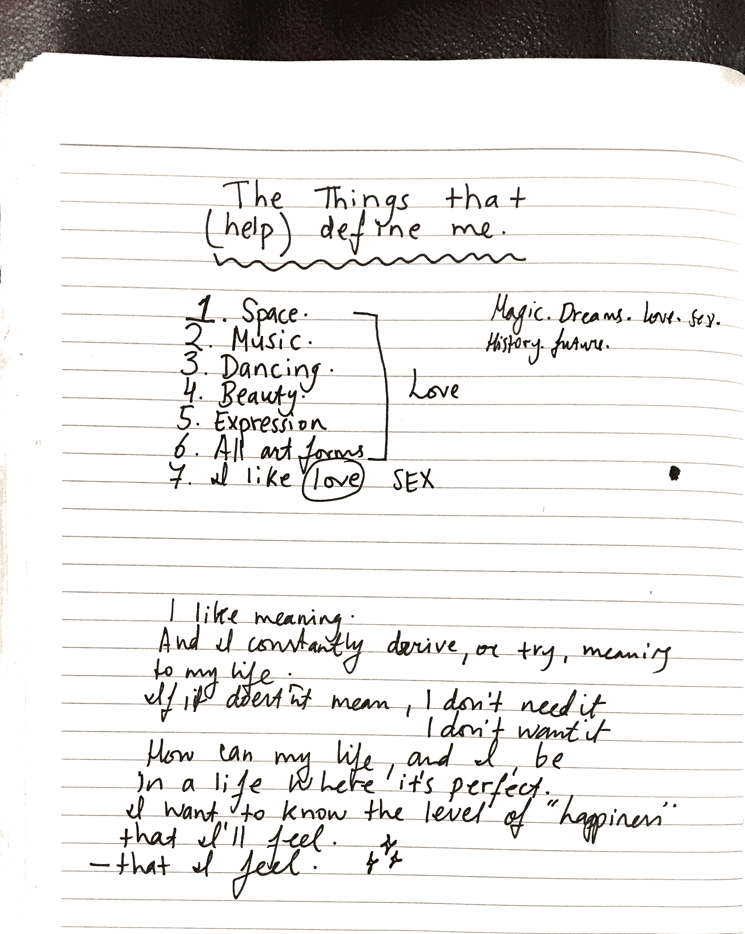 The Things that
(help) define me.
1. Space.
2. Music.
3. Dancing.
4. Beauty.
5. Expression
6. All art forms
7. I like love SEX
Love
Magic. Dreams. Love. Sex.
History. future.
I like meaning.
And I constantly derive, or try, meaning
to my life.
If it doesn't mean, I don't need it
I don't want it
How can my life, and I, be
in a life where it's perfect.
I want to know the level of "happiness"
that I'll feel.
– that I feel.